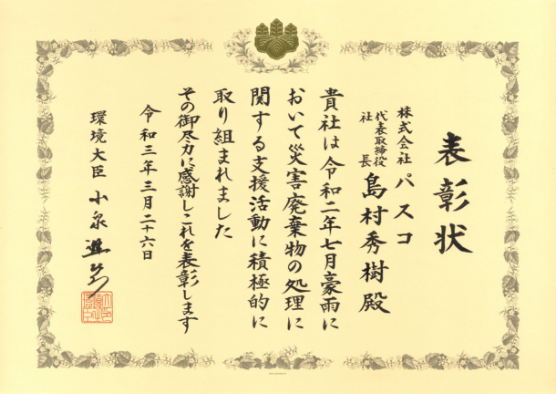 表彰状
株式会社 パスコ
代表取締役
社長 島村秀樹殿
貴社は令和二年七月豪雨に
おいて災害廃棄物の処理に
関する支援活動に積極的に
取り組まれました
その御尽力に感謝しこれを表彰します
令和三年三月二十六日
環境大臣 小泉進次郎